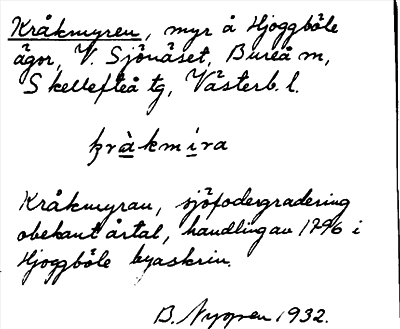 Kråkmyren, myr å Hjoggböle
ägor, V. Sjönäset, Bureå m,
Skellefteå tg, Västerb. l.
kràkmíra
Kråkmyran, sjöfodergradering
obekant årtal, handlingar 1796 i
Hjoggböle byaskrin.
B. Nyppen 1932.